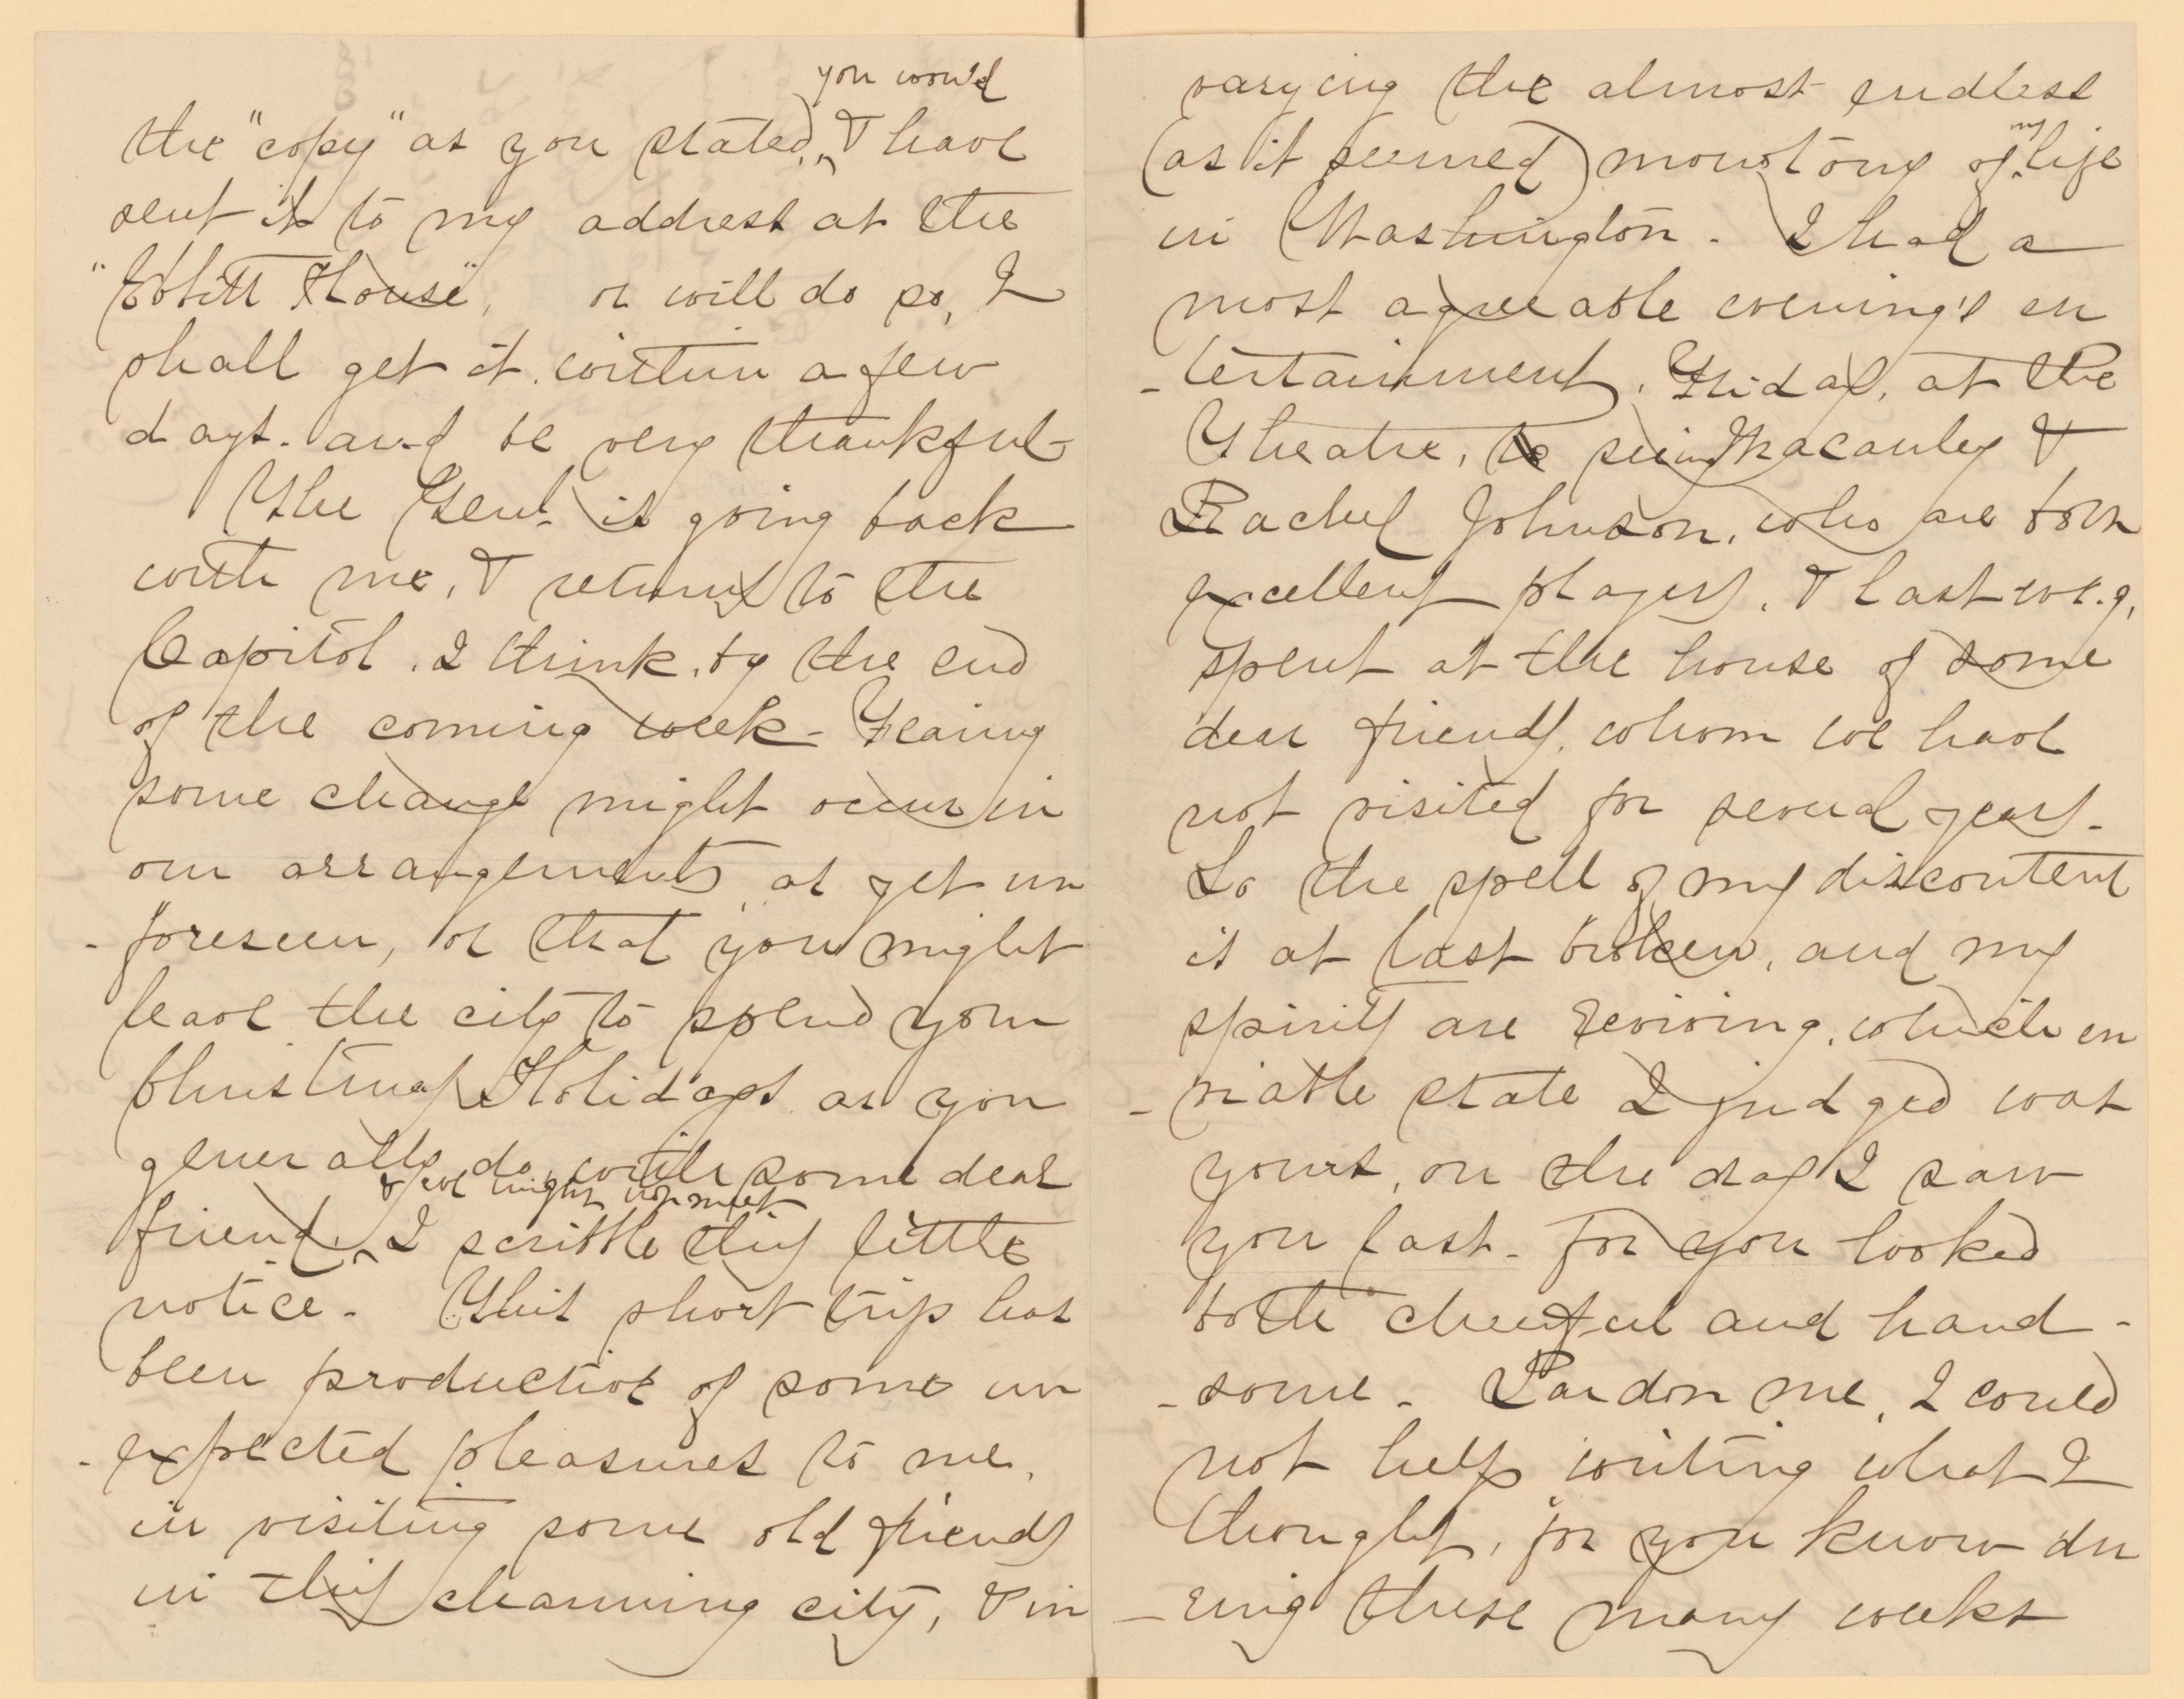 you would
the "copy" as you stated, & have
sent it to my address at the
"Ebbitt House", or will do so, I
shall get it within a few
days. and be very thankful
The Genl. is going back
with me, & returns to the
Capitol. I think, by the end
of the coming week - Fearing
some change might occur in
our arrangements, as yet un
- foreseen, or that you might
leave the city to spend your
Christmas Holidays as you
generally do, with some dear
& we might not meet
friend. I scribble this little
notice. This short trip has
been productive of some un
- expected pleasures to me,
in visiting some old friends
in this charming city, & in
varying the almost endless
my
(as it seemed) monotony of life
in Washington. I had a
most agreeable evening's en
- tertainment, Friday, at the
Theatre, seeing Macauley &
Rachel Johnson, who are both
excellent players, & last evg,
spent at the house of some
dear friends, whom we have
not visited for several years.
So the spell of my discontent
is at last broken, and my
spirits are reviving, which en
- viable state I judged was
yours, on the day I saw
you last - for you looked
both cheerful and hand -
- some. Pardon me, I could
not help writing what I
thought, for you know du
- ring these many weeks